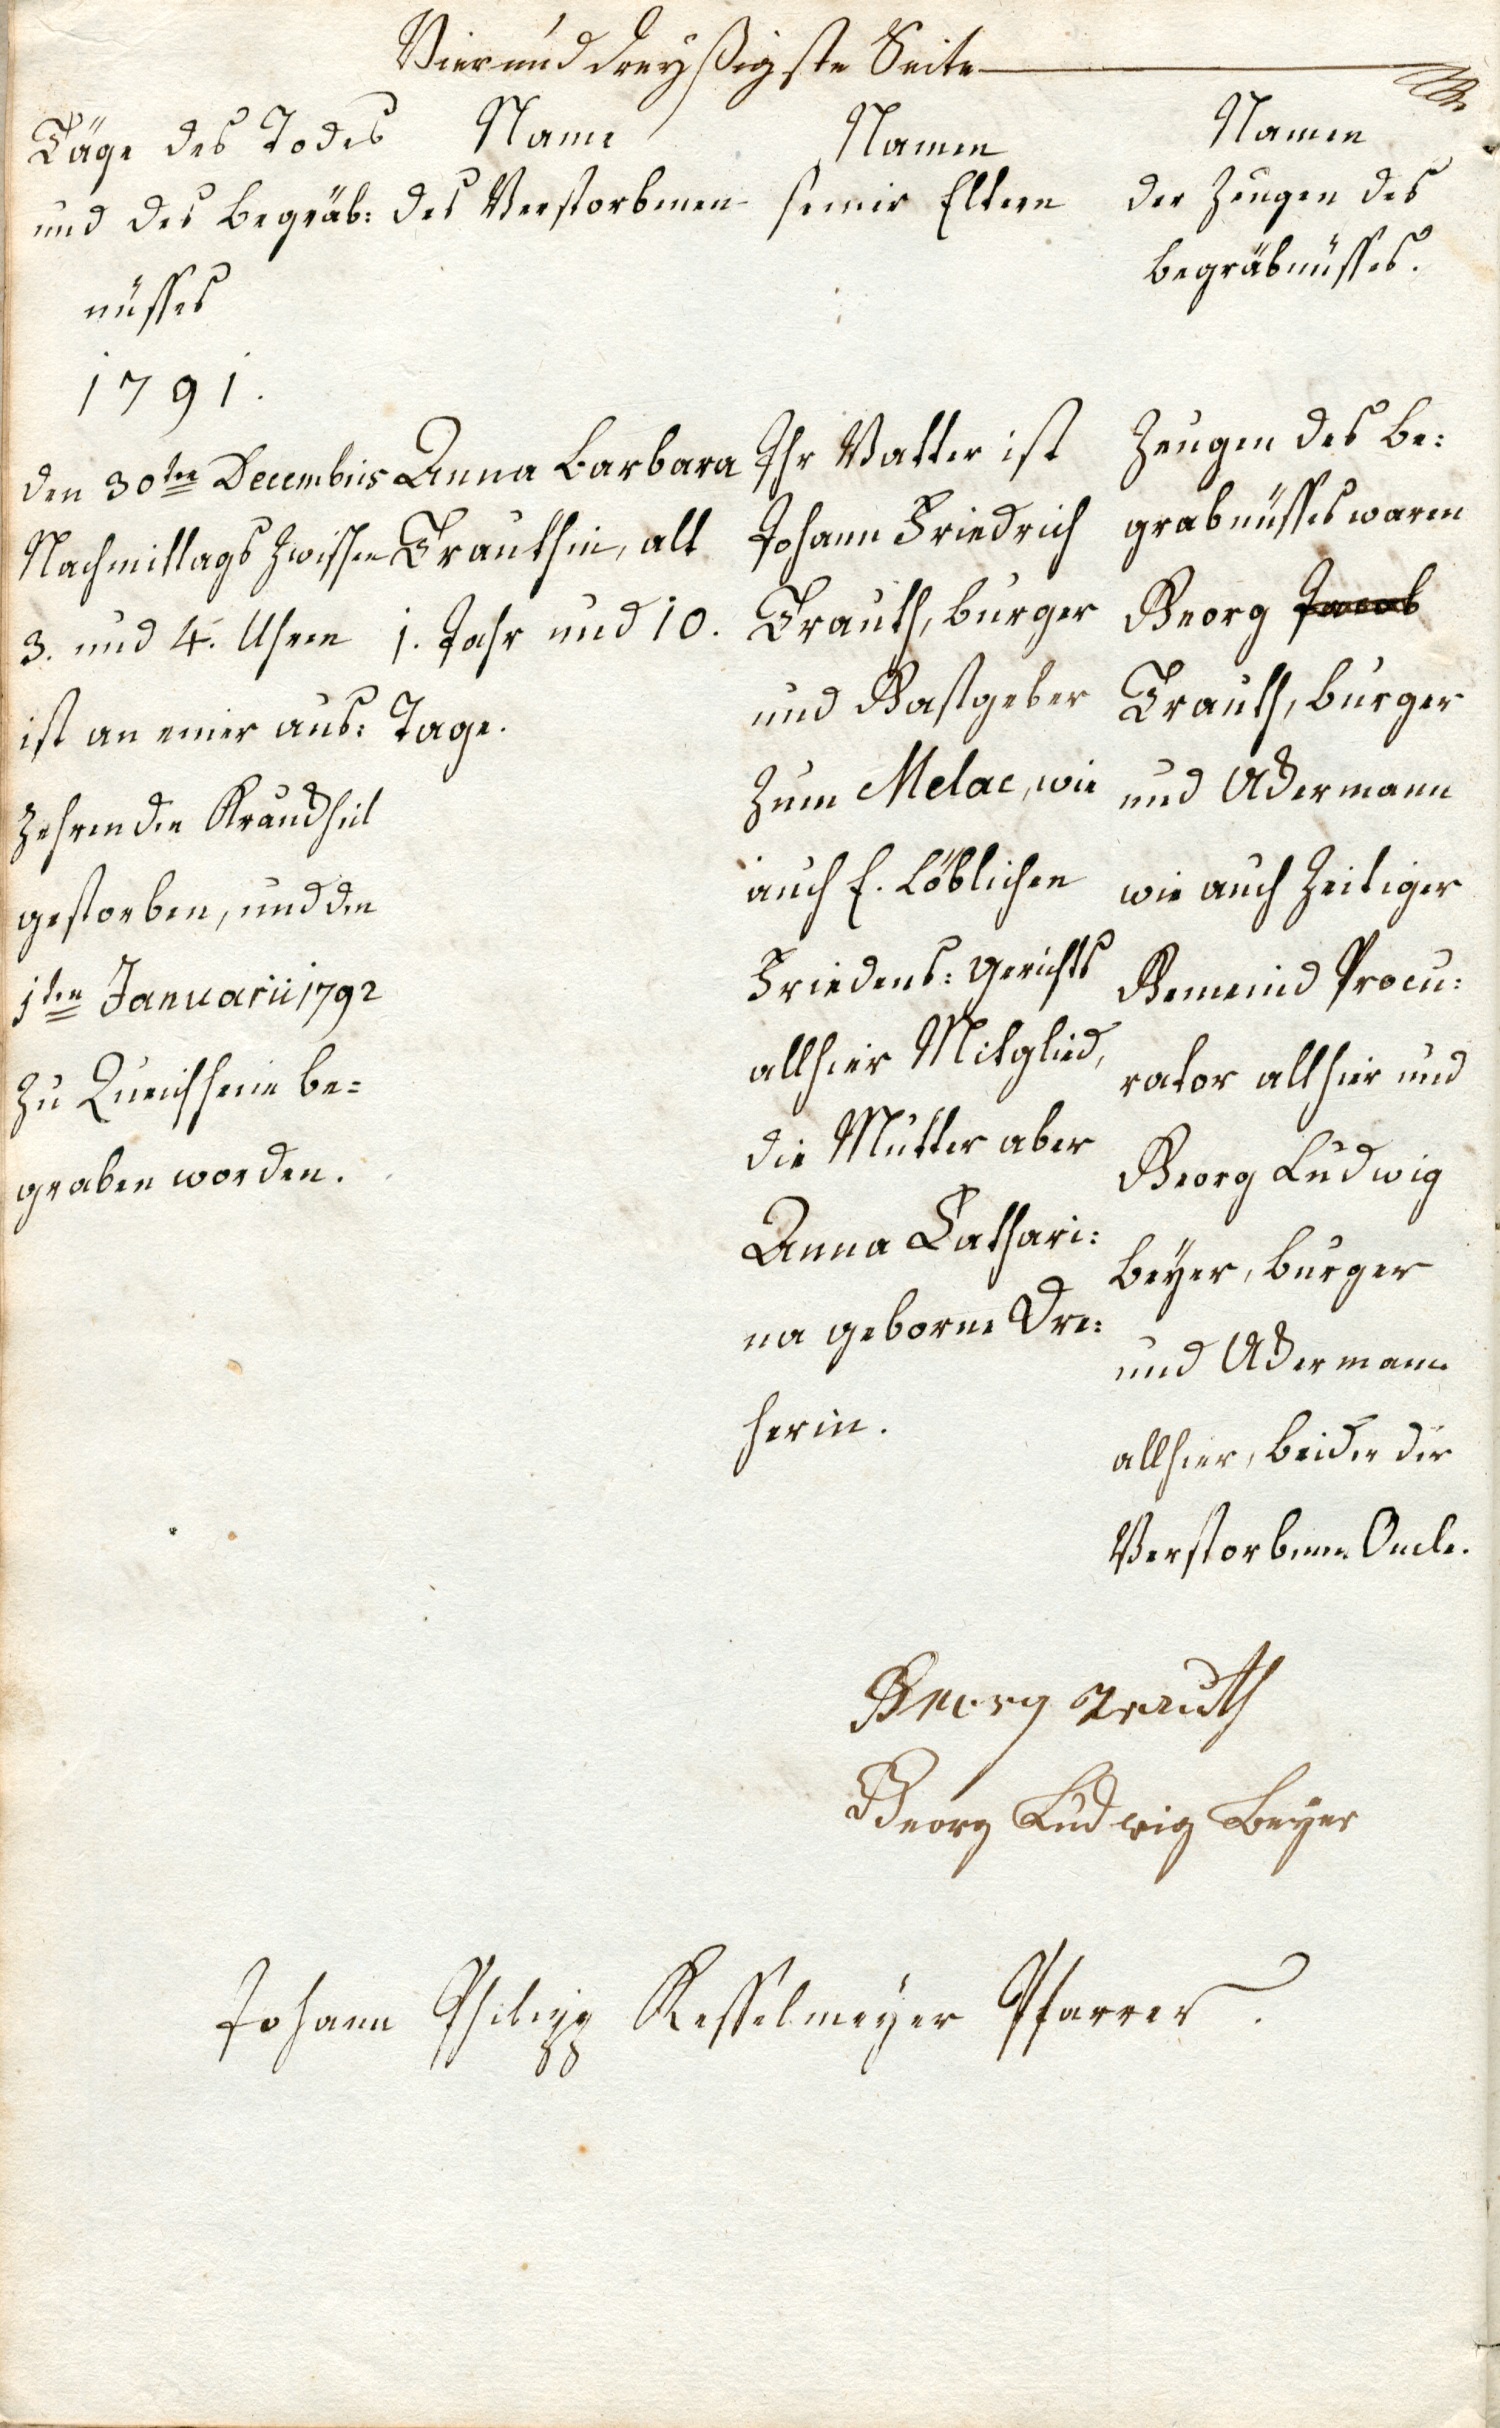 Vier und dreyßigste Seite
Täge des Todes
und des Begräb:
nüsses
1791.
den 30ten Decembris
Nachmittags zwischen
3. und 4. Uhren
ist an einer aus:
zehrenden Kranckheit
gestorben, und den
1ten Januarii 1792
zu Queichheim be=
graben worden.
Name
des Verstorbenen
Anna Barbara
Trauthin, alt
1. Jahr und 10.
Tage.
Namen
seiner Eltern
Ihr Vatter ist
Johann Friedrich
Trauth, burger
und Gastgeber
zum Melac, wie
auch E. Löblichen
Friedens: Gerichts
allhier Mitglied,
die Mutter aber
Anna Cathari:
na geborne Dre:
herin.
Namen
der Zeugen des
Begräbnüsses.
Zeugen des Be:
grabnüsses waren
Georg Jacob
Trauth, burger
und Ackermann
wie auch zeitiger
Gemeind Procu:
rator allhier und
Georg Ludwig
Beÿer, burger
und Ackermann
allhier, beide der
Verstorbenen Oncle.
Georg Trauth
Georg Ludwig Beÿer
Johann Philipp Kesselmeÿer Pfarrer.